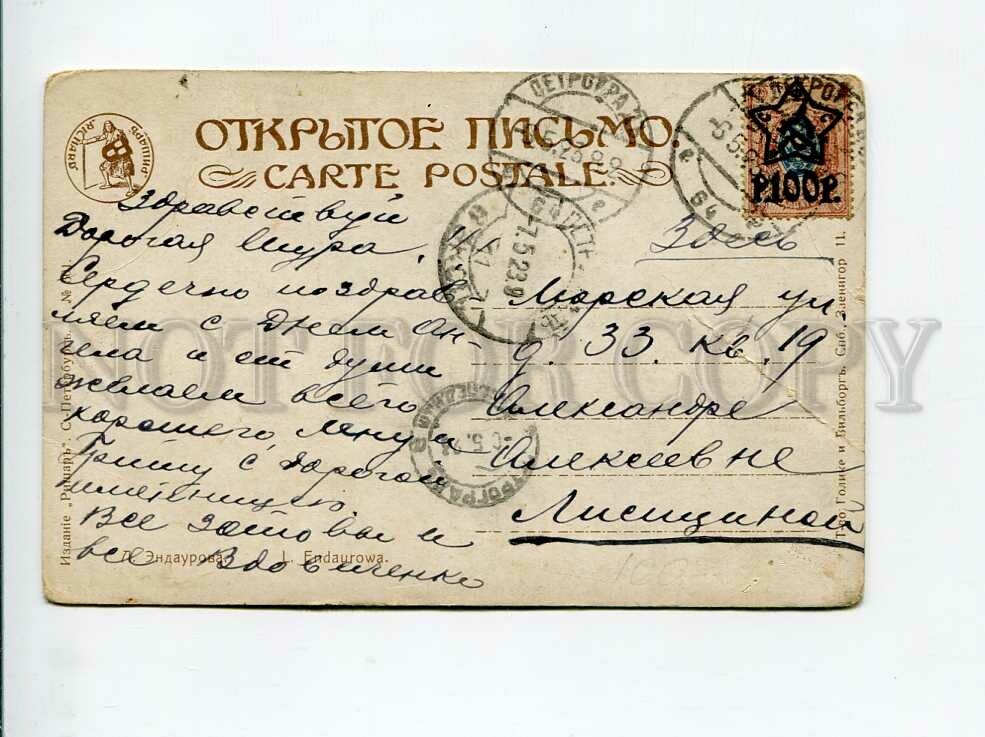 ОТКРЫТОЕ ПИСЬМО.
CARTE POSTALE.
РИШАРЪ
RICHARD
ПЕТРОГРАД
Р.100Р.
7.5.23.9
Здравствуй
Дорогая Шура,
Сердечно поздрав
ляем с Днем Ан-
гела и от души
желаем всего
хорошего, Лёну и
Гришу с дорогой
имениницею.
Все Зотовы и
все Вдовиченко
Здесь
Морская ул
д. 33. кв. 19
Александре
Алексеевне
Лисициной
Л. Эндаурова. L. Endaurowa.
Изданіе „Ришаръ“. С.-Петербургъ. №
Тип. Голике и Вильборгъ. Спб., Звенигор 11.
NOT FOR COPY